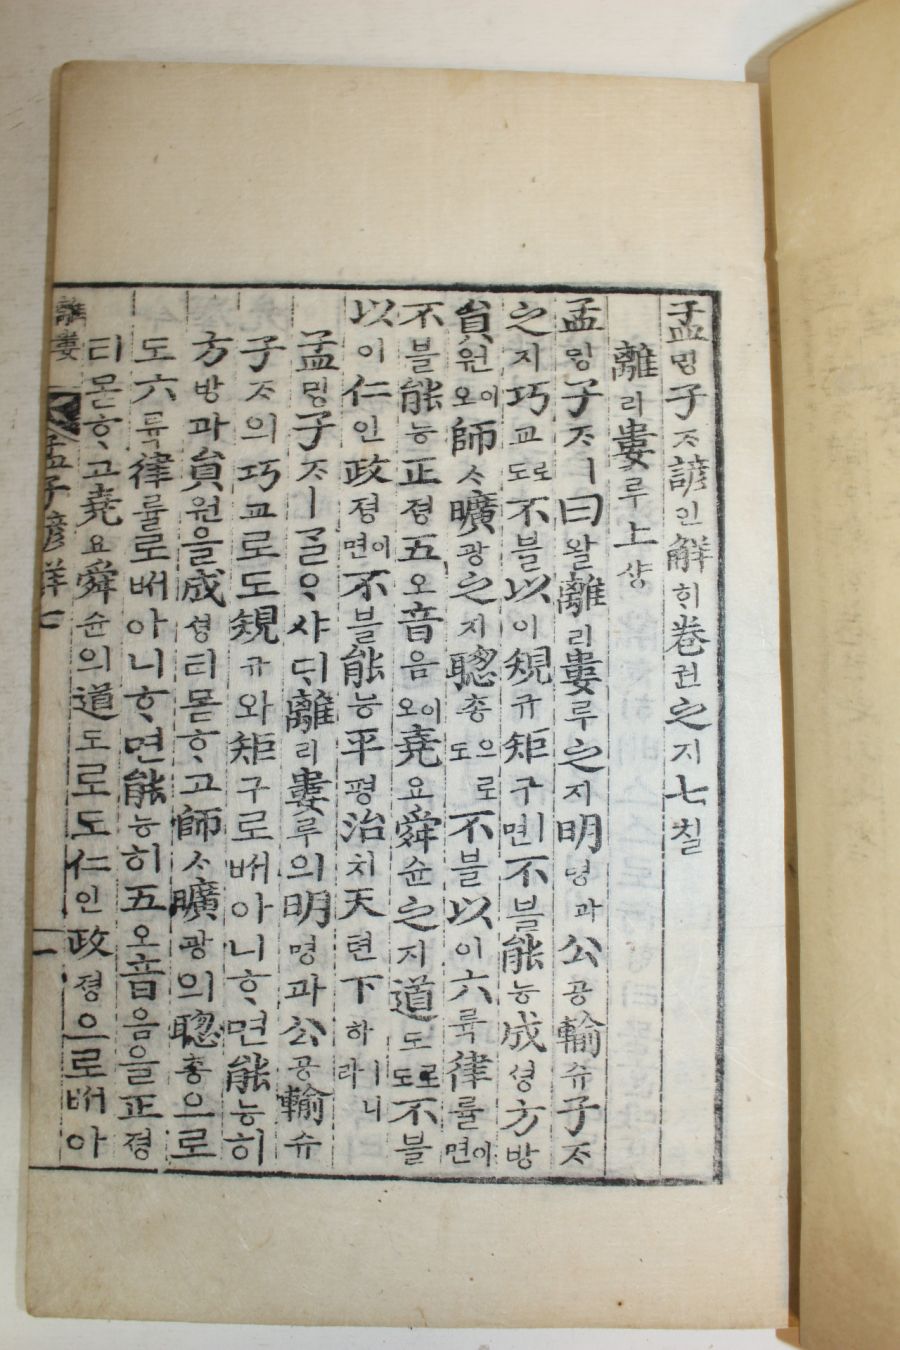 孟ᄆᆡᆼ子ᄌᆞ諺언解ᄒᆡ卷권之지七칠
離리婁루上샹
孟ᄆᆡᆼ子ᄌᆞㅣ曰왈離리婁루之지明명과公공輸슈子ᄌᆞ
之지巧교도로不블以이規규矩구ㅣ면不블能능成셩方방
員원오이師ᄉᆞ曠광之지聰총도으로不블以이六륙律률이면
不블能능正졍五오音음오이堯요舜슌之지道도도로不블
以이仁인政졍이면不블能능平평治치天텬下하ㅣ라니
孟ᄆᆡᆼ子ᄌᆞㅣᄀᆞᆯᄋᆞ샤ᄃᆡ離리婁루의明명과公공輸슈
子ᄌᆞ의巧교로도規규와矩구로ᄡᅥ아니ᄒᆞ면能능히
方방과員원을成셩티몯ᄒᆞ고師ᄉᆞ曠광의聰총으로
도六륙律률로ᄡᅥ아니ᄒᆞ면能능히五오音음을正졍
티몯ᄒᆞ고堯요舜슌의道도로도仁인政졍으로ᄡᅥ아
離婁 孟子諺解七 一